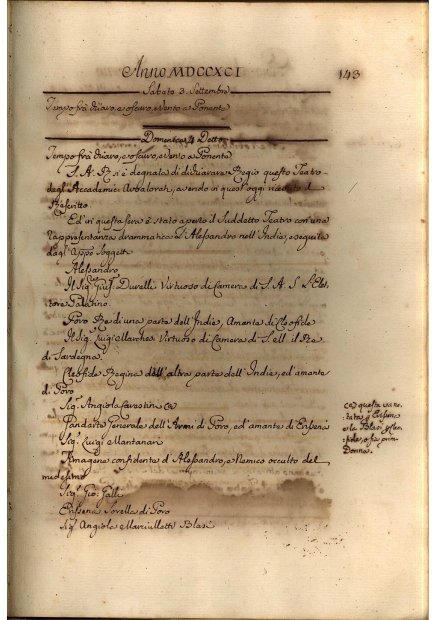 Anno MDCCXCI
143
Sabato 3. Settembre
Tempo frà chiaro, e oscuro, e Vento a Ponente
Domenica 4 Detto
Tempo frà chiaro, e oscuro, e Vento a Ponente
S. A. R. si è degnata di dichiarare Regio questo Teatro
degli Accademici Avvalorati, avendo in quest'oggi ricevuto il
Rescritto
Ed in questa sera è stato aperto il suddetto Teatro con una
rappresentanza drammatica L'Alessandro nell'Indie, eseguita
dagl'Appo Soggetti
Alessandro
Il Sig. Giuf. Durelli Virtuoso di Camera di S. A. S. L'Elet
tore Palatino
Poro Re di una parte dell'Indie, Amante di Cleofide
Il Sig. Luigi Marchesi Virtuoso di Camera di S. M. il Re
di Sardegna
Cleofide Regina dell'altra parte dell'Indie, ed'amante
di Poro
Sig. Angiola
Gandarte Generale dell'Armi di Poro, ed'amante di Erissena
Sig. Luigi Mantanari
Timagene confidente d'Alessandro, e Nemico occulto del
medesimo
Sig. Gio. Galli
Erissena Sorella di Poro
Sig. Angiola Blasi
questa can
tata
e la Blasi
prim
Donna.